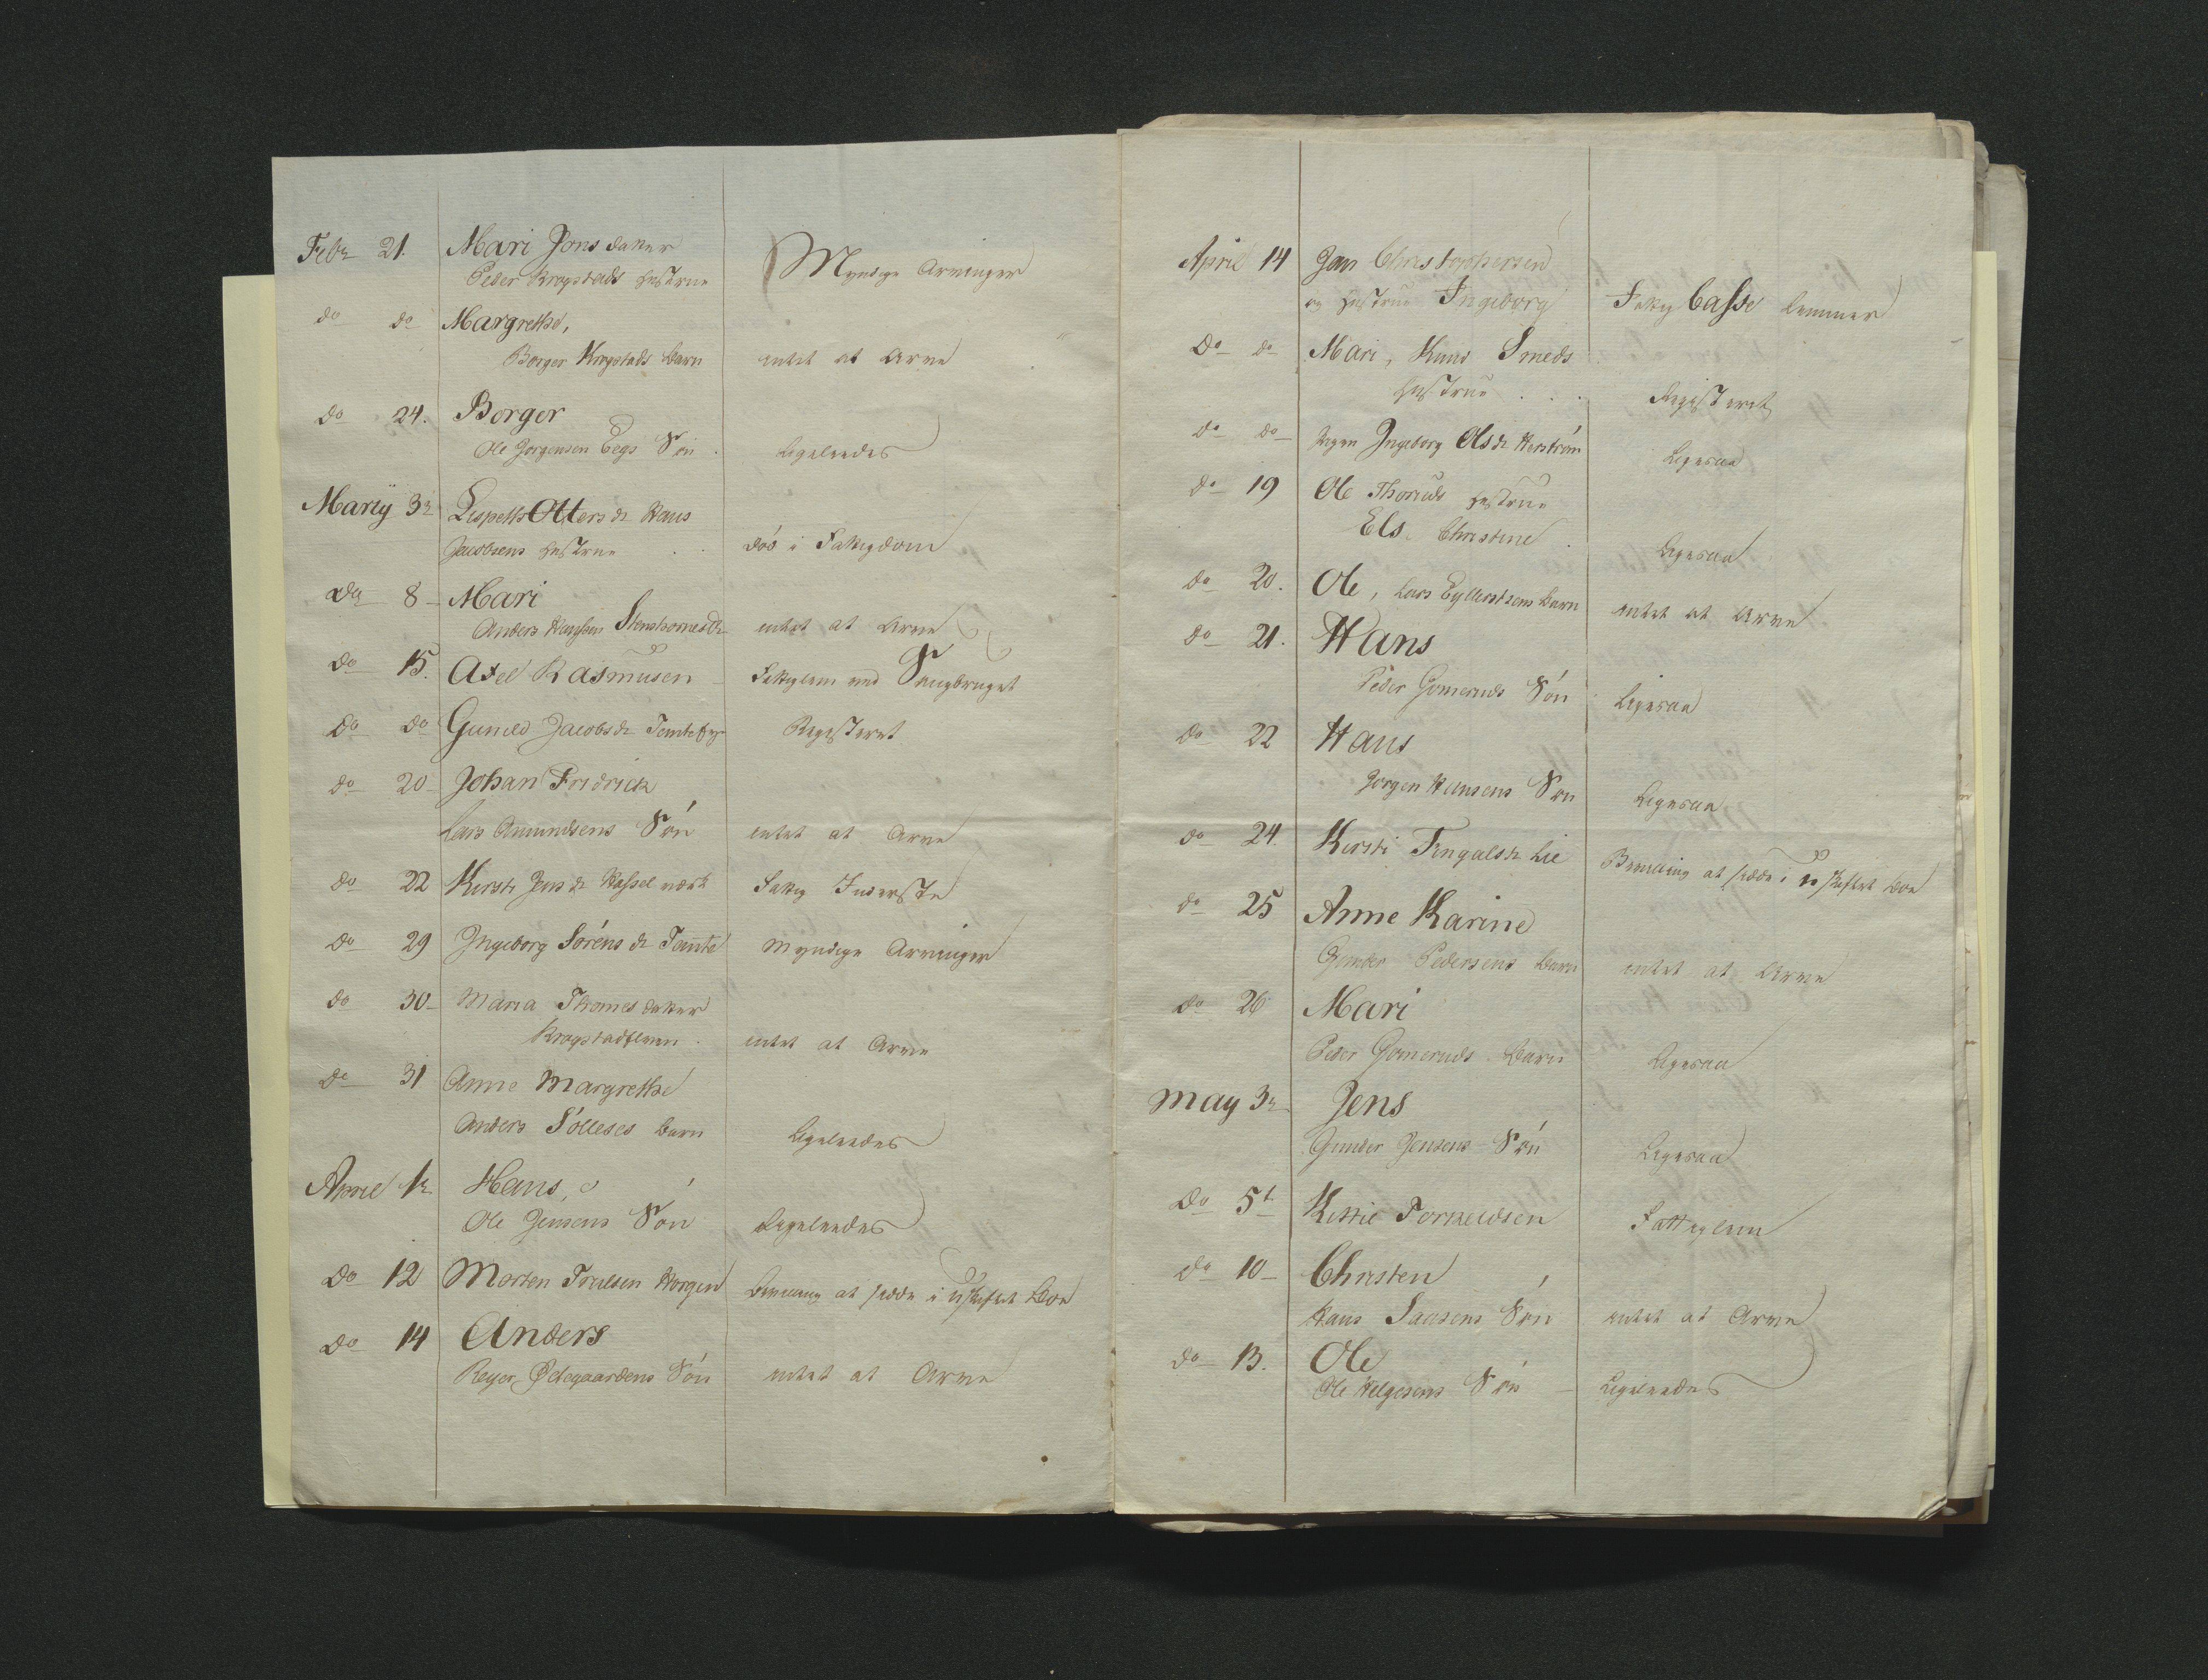 Febr 21. Mari Jons datter
Peder Krogstads Hustrue Myndige Arvinger
do do Margrethe,
Borger Krogstads barn intet at Arve
do 24. Borger
Ole Jørgensen Eegs Søn. Ligeleedes
Martÿ 3e Lispeth Otters dr Hans
Jacobsens Hustrue . . døde i Fattigdom
do 8 Mari
Anders Hansen Stenshornes dr intet at Arve
do 15. Axel Rasmusen Fattiglem ved Saugbruget
do do Gunild Jacobs dr Registeret
do 20 Johan Fridrick
Lars Amundsens Søn intet at Arve
do 22 Kirsti Jens dr Hassel værk Fattig Inderste
do 29 Ingeborg Sørens dr Tamte Myndige Arvinger
do 30 Maria Thomes datter
Krogstadeleven. intet at Arve
do 31 Anne Margrethe
Anders Sølleses barn Ligeleedes
April 1e Hans,
Ole Jensens Søn Ligeleedes
do 12 Morten Troelsen Horgen Bevilling at sidde i uskiftet Boe
do 14 Anders
Reyer Ødegaardens Søn intet at Arve
April 14 Jan Christophersen
og Hustrue Ingeborg Fattig Casse Lemmer
do do Mari, Knud Smeds
Hustrue . . . Registeret
do do Pigen Ingeborg Ols dr Ligesaa
do 19 Ole Thoruds Hustrue
Els. Christine . Ligesaa
do 20. Ole, Lars Eyllertsens barn intet at Arve
do 21. Hans
Peder Gomeruds Søn Ligesaa
do 22 Hans
Jorgen Hansens Søn Ligesaa
do 24. Kirsti Fingals dr Lie Bevilling at sidde i u skiftet Boe
do 25 Anne Karine
Gunder Pedersens barn intet at Arve
do 26 Mari
Peder Gomeruds barn Ligesaa
May 3e Jens
Gunder Jensens Søn Ligesaa
do 5t Kittil Torkeldsen Fattiglem
do 10 Christen
Hans Saasens Søn intet at Arve
do 13. Ole
Ole Helgesens Søn Ligeleedes